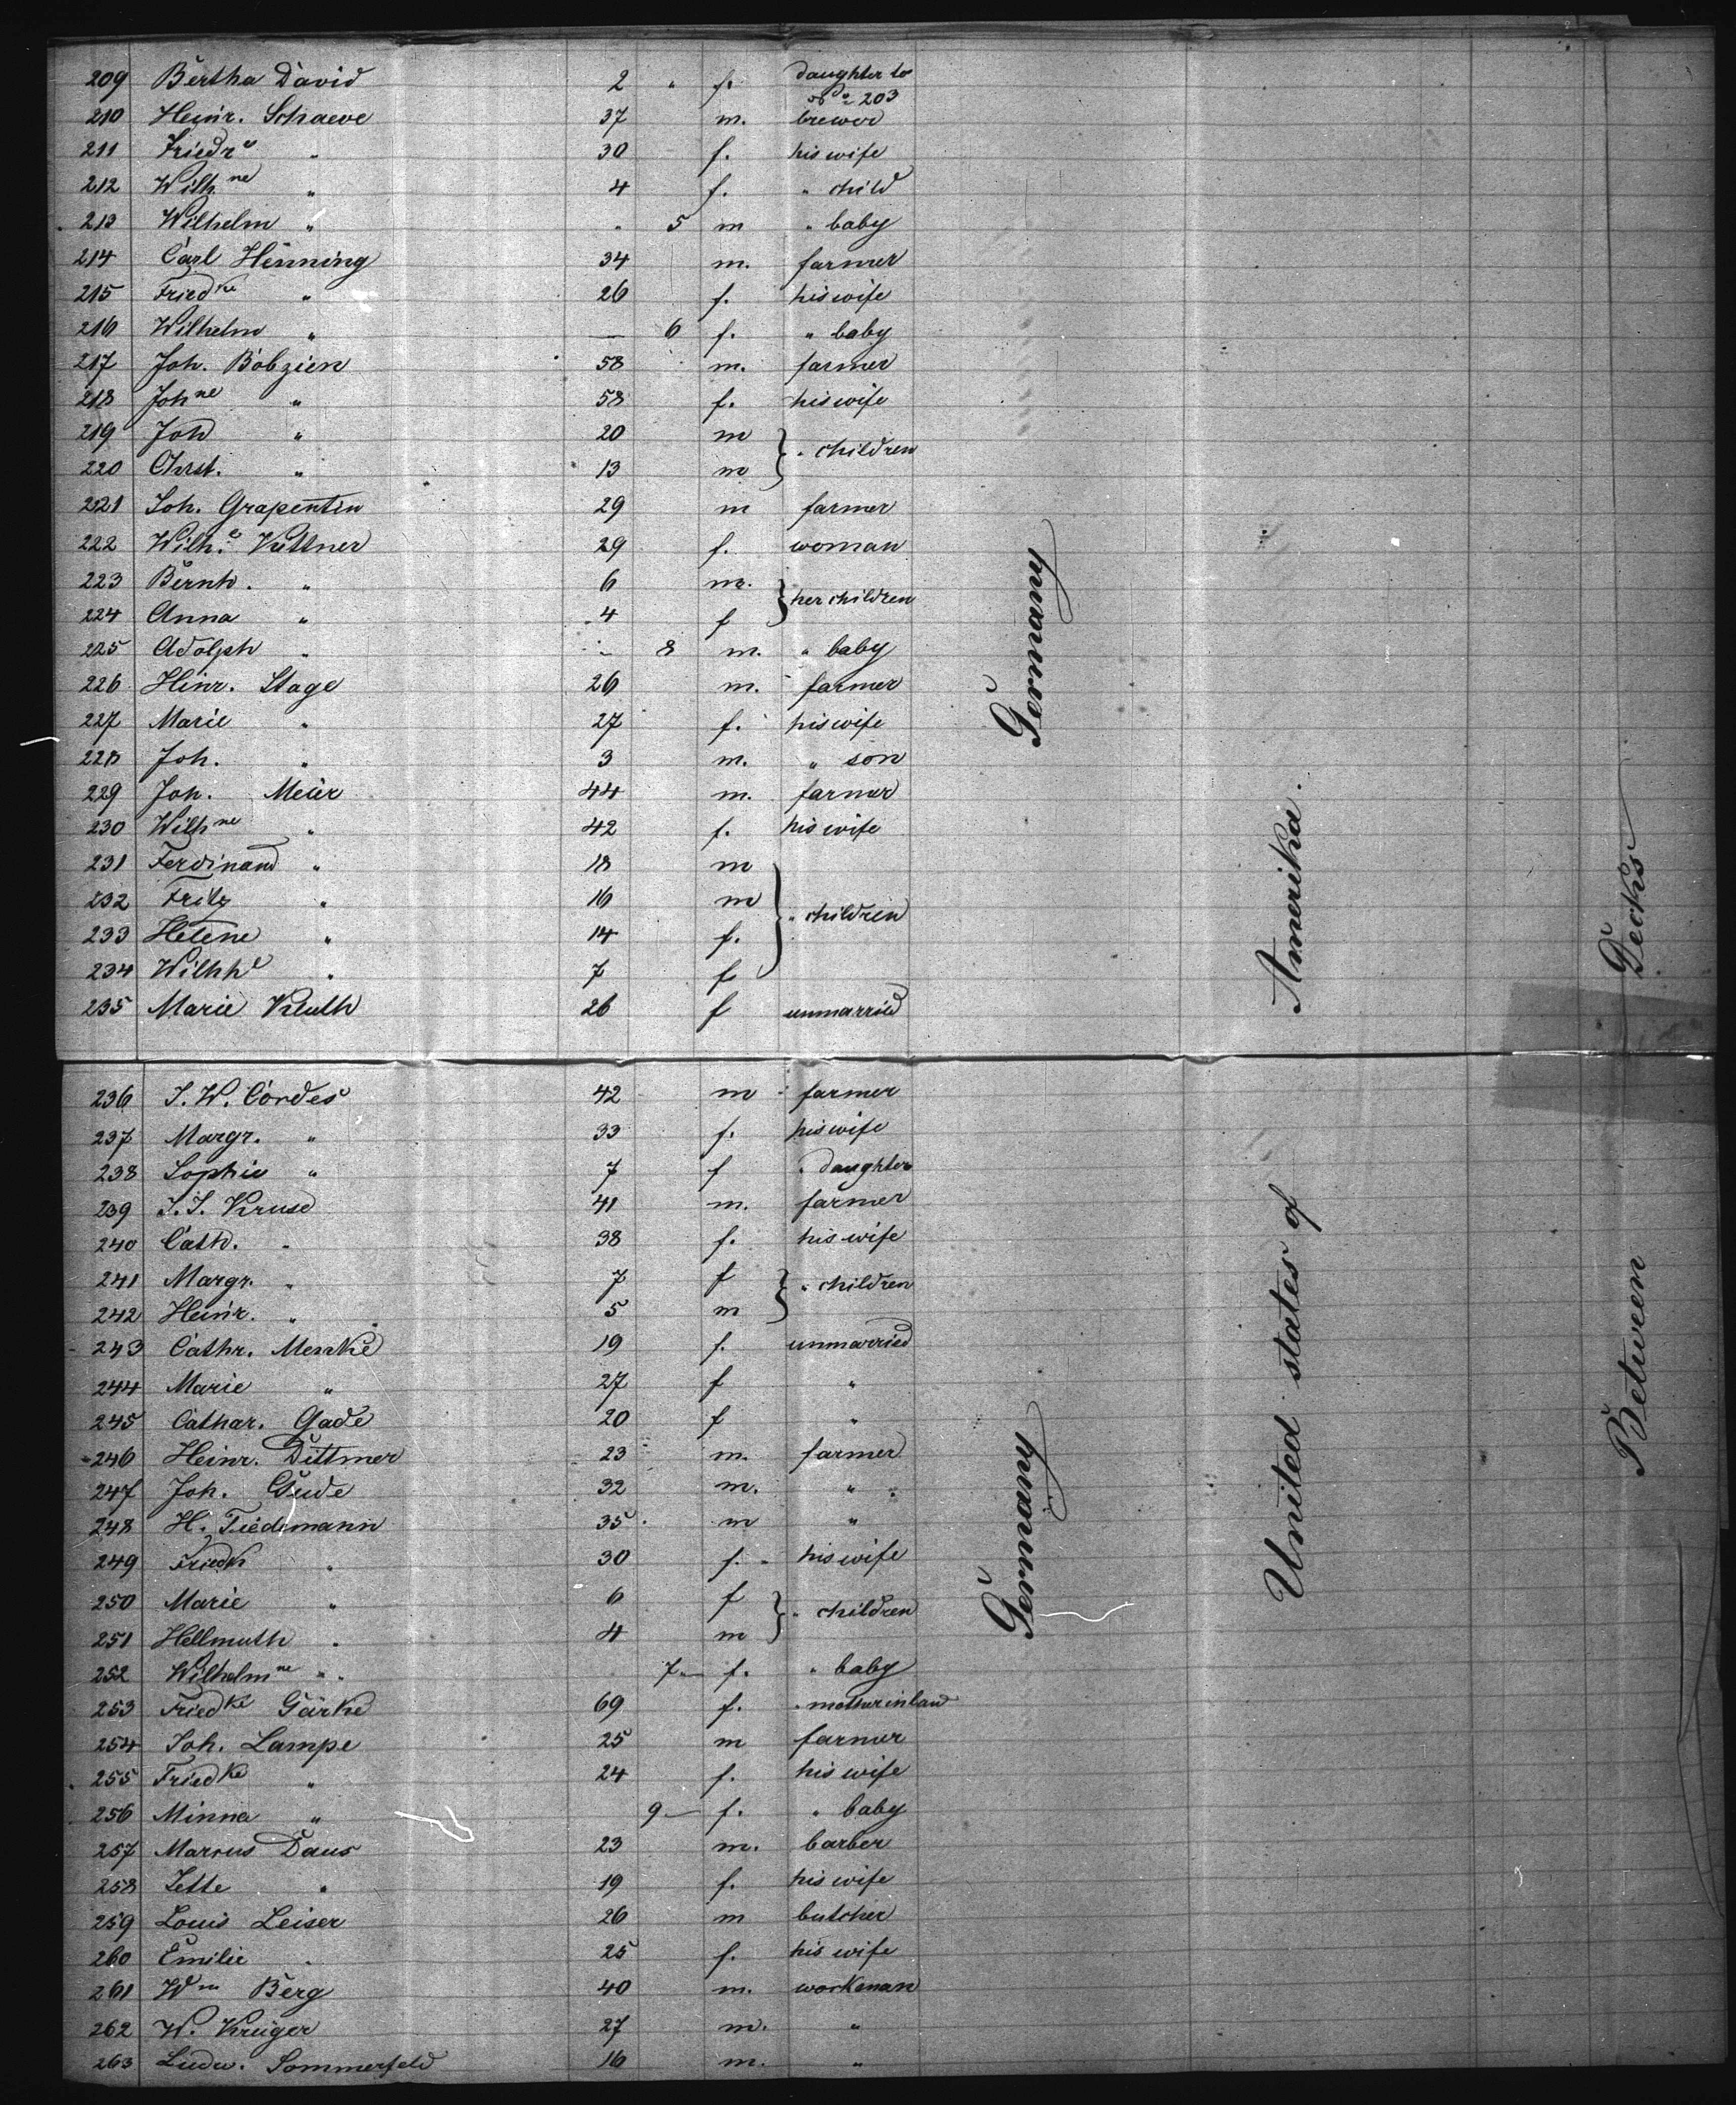 209 Bertha David 2 " f. daughter to
No 203
210 Heinr. Schaeve 37 m. brewer
211 Friedre " 30 f. his wife
212 Wilhne " 4 f. " child
213 Wilhelm " " 5 m " baby
214 Carl Henning 34 m. farmer
215 Friedke " 26 f. his wife
216 Wilhelm " — 6 f. " baby
217 Joh. Bobzien 58 m. farmer
218 Johne " 58 f. his wife
219 Joh " 20 m } " children
220 Chrst. " 13 m
221 Joh. Grapentin 29 m farmer
222 Wilh.e Küttner 29 f. woman
223 Bernh. " 6 m. } her children
224 Anna " 4 f
225 Adolph " - 8 m. " baby
226 Hinr. Stage 26 m. farmer
227 Marie " 27 f. his wife
228 Joh. " 3 m. " son
229 Joh. Meier 44 m. farmer
230 Wilhne " 42 f. his wife
231 Ferdinand " 18 m
232 Fritz " 16 m } " children
233 Helene " 14 f.
234 Wilhhe " 7 f
235 Marie Kluth 26 f unmarried
236 J. W. Cordes 42 m farmer
237 Margr. " 33 f. his wife
238 Sophie " 7 f " daughter
239 J. J. Kruse 41 m. farmer
240 Cath. " 38 f. his wife
241 Margr. " 7 f } " children
242 Heinr. " 5 m
243 Cathr. Menke 19 f. unmarried
244 Marie " 27 f "
245 Cathar. Gade 20 f "
246 Heinr. Dittmer 23 m. farmer
247 Joh. Gude 32 m. "
248 H. Tiedemann 35 m "
249 Friedk " 30 f. his wife
250 Marie " 6 f } " children
251 Hellmuth " 4 m
252 Wilhelmne " 7 f. " baby
253 Friedke Gärke 69 f. " motherinlaw
254 Joh. Lampe 25 m farmer
255 Friedke " 24 f. his wife
256 Minna " 9 f. " baby
257 Marcus Daus 23 m. barber
258 Jette " 19 f. his wife
259 Louis Leiser 26 m butcher
260 Emilie " 25 f. his wife
261 Wm Berg 40 m. workman
262 W. Krüger 27 m. "
263 Ludw. Sommerfeld 16 m. "
Germany
Germany
United states of Amerika.
Between Decks